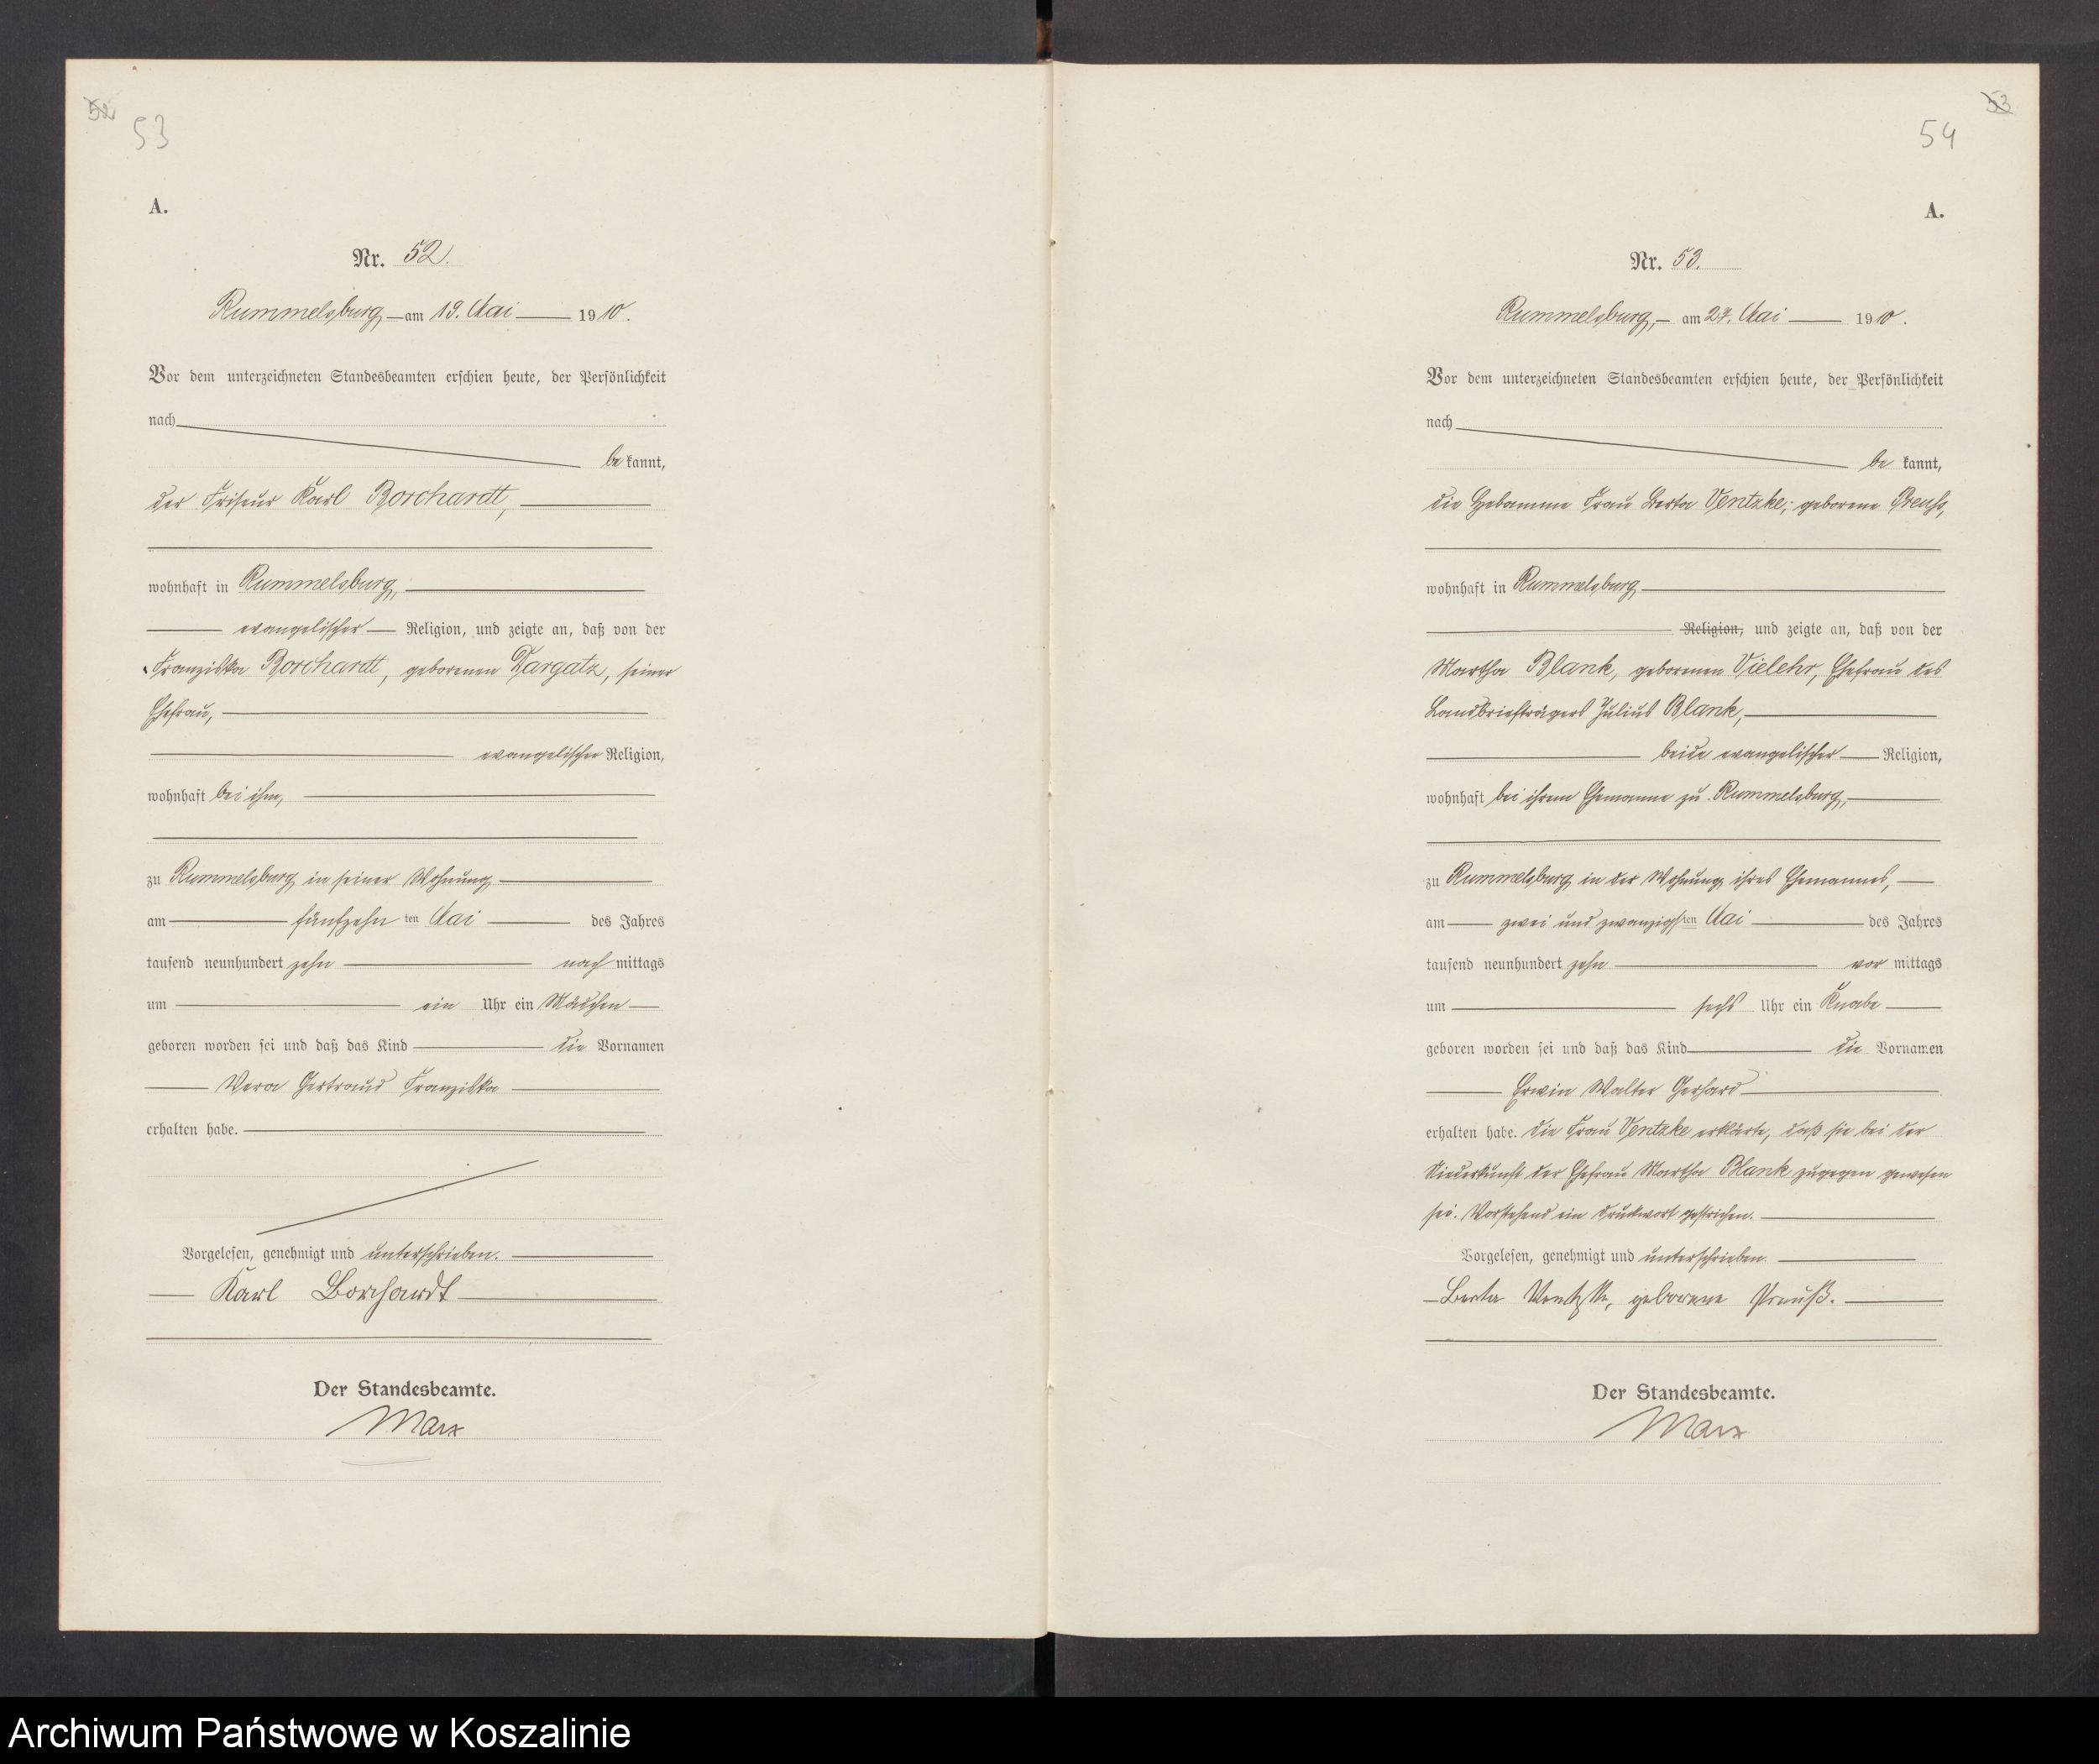 52
53
A.
Nr. 52.
Rummelsburg, am 19. Mai 1910.
Vor dem unterzeichneten Standesbeamten erschien heute, der Persönlichkeit
nach
be kannt,
der Friseur Karl Borchardt,
wohnhaft in Rummelsburg,
evangelischer Religion, und zeigte an, daß von der
Franziska Borchardt, geborenen Dargatz, seiner
Ehefrau,
evangelischer Religion,
wohnhaft bei ihm,
zu Rummelsburg in seiner Wohnung
am fünfzehn ten Mai des Jahres
tausend neunhundert zehn nach mittags
um ein Uhr ein Mädchen
geboren worden sei und daß das Kind die Vornamen
Vera Gertraud Franziska
erhalten habe.
Vorgelesen, genehmigt und unterschrieben.
Karl Borchardt
Der Standesbeamte.
Marx
53
54
A.
Nr. 53.
Rummelsburg, am 27. Mai 1910.
Vor dem unterzeichneten Standesbeamten erschien heute, der Persönlichkeit
nach
be kannt,
die Hebamme Frau Berta Ventzke, geborene Preuß,
wohnhaft in Rummelsburg
Religion, und zeigte an, daß von der
Martha Blank, geborenen Vielehr, Ehefrau des
Landbriefträgers Julius Blank,
beide evangelischer Religion,
wohnhaft bei ihrem Ehemanne zu Rummelsburg,
zu Rummelsburg in der Wohnung ihres Ehemannes,
am zwei und zwanzigsten Mai des Jahres
tausend neunhundert zehn vor mittags
um sechs Uhr ein Knabe
geboren worden sei und daß das Kind die Vornamen
Erwin Walter Gerhard
erhalten habe. Die Frau Ventzke erklärte, daß sie bei der
Niederkunft der Ehefrau Martha Blank zugegen gewesen
sei. Vorstehend ein Druckwort gestrichen.
Vorgelesen, genehmigt und unterschrieben.
Berta Ventzke, geborene Preuß.
Der Standesbeamte.
Marx
Archiwum Państwowe w Koszalinie